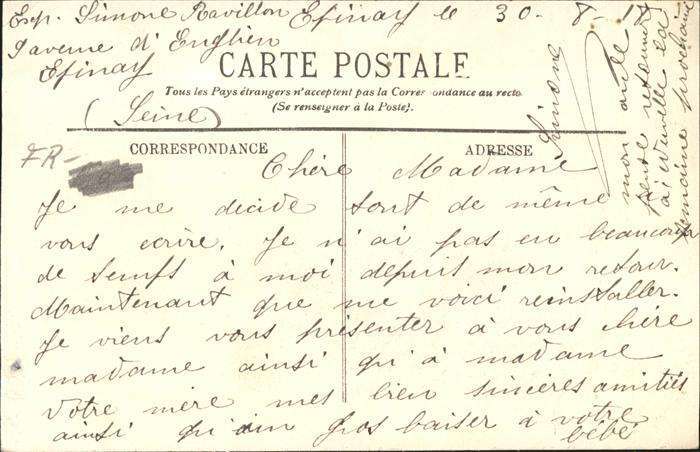 Exp. Simone Ravillon Epinay le 30-8-18
Taverne d'Enghien
Epinay
(Seine)
CARTE POSTALE
Tous les Pays étrangers n'acceptent pas la Correspondance au recto
(Se renseigner à la Poste).
CORRESPONDANCE
ADRESSE
FR-
Chère Madame
Je me decide tout de même
vous ecrire. Je n'ai pas eu beaucoup
de temps à moi depuis mon retour.
Maintenant que me voici reinstaller.
Je viens vous présenter à vous chère
madame ainsi qu'à madame
votre mère mes bien sincères amitiés
ainsi qu'un gros baiser à votre
bébé
Simone
mon
retenue
semaine prochaine